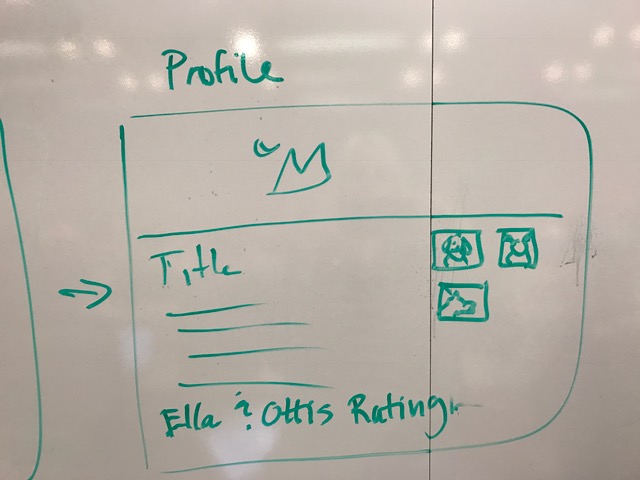 Profile
Title
Ella & Ottis Rating